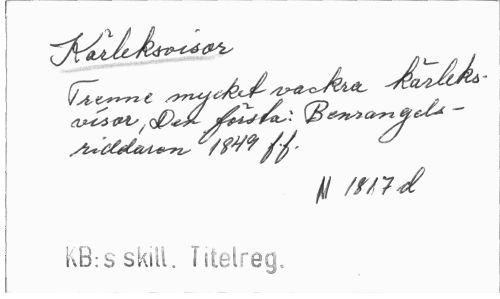 Kärleksvisor
Trenne mycket vackra kärleks-
visor, Den första: Benrangels-
riddaren 1849 ff.
N 1817 d
KB:s skill. Titelreg.